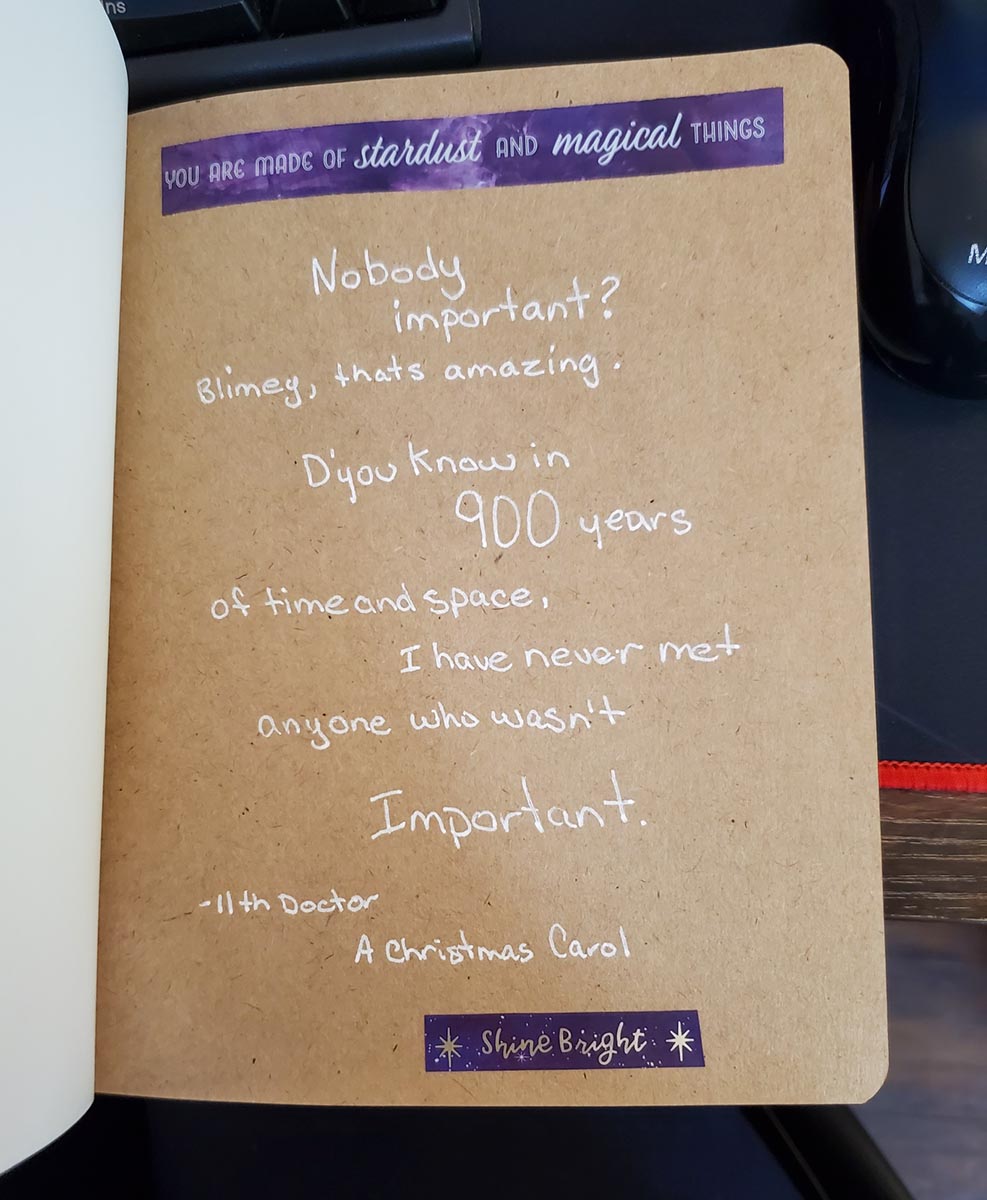 ns
YOU ARE MADE OF stardust AND magical THINGS
Nobody
important?
Blimey, thats amazing.
D'you know in
900 years
of time and space,
I have never met
anyone who wasn't
Important.
-11th Doctor
A Christmas Carol
Shine Bright
M